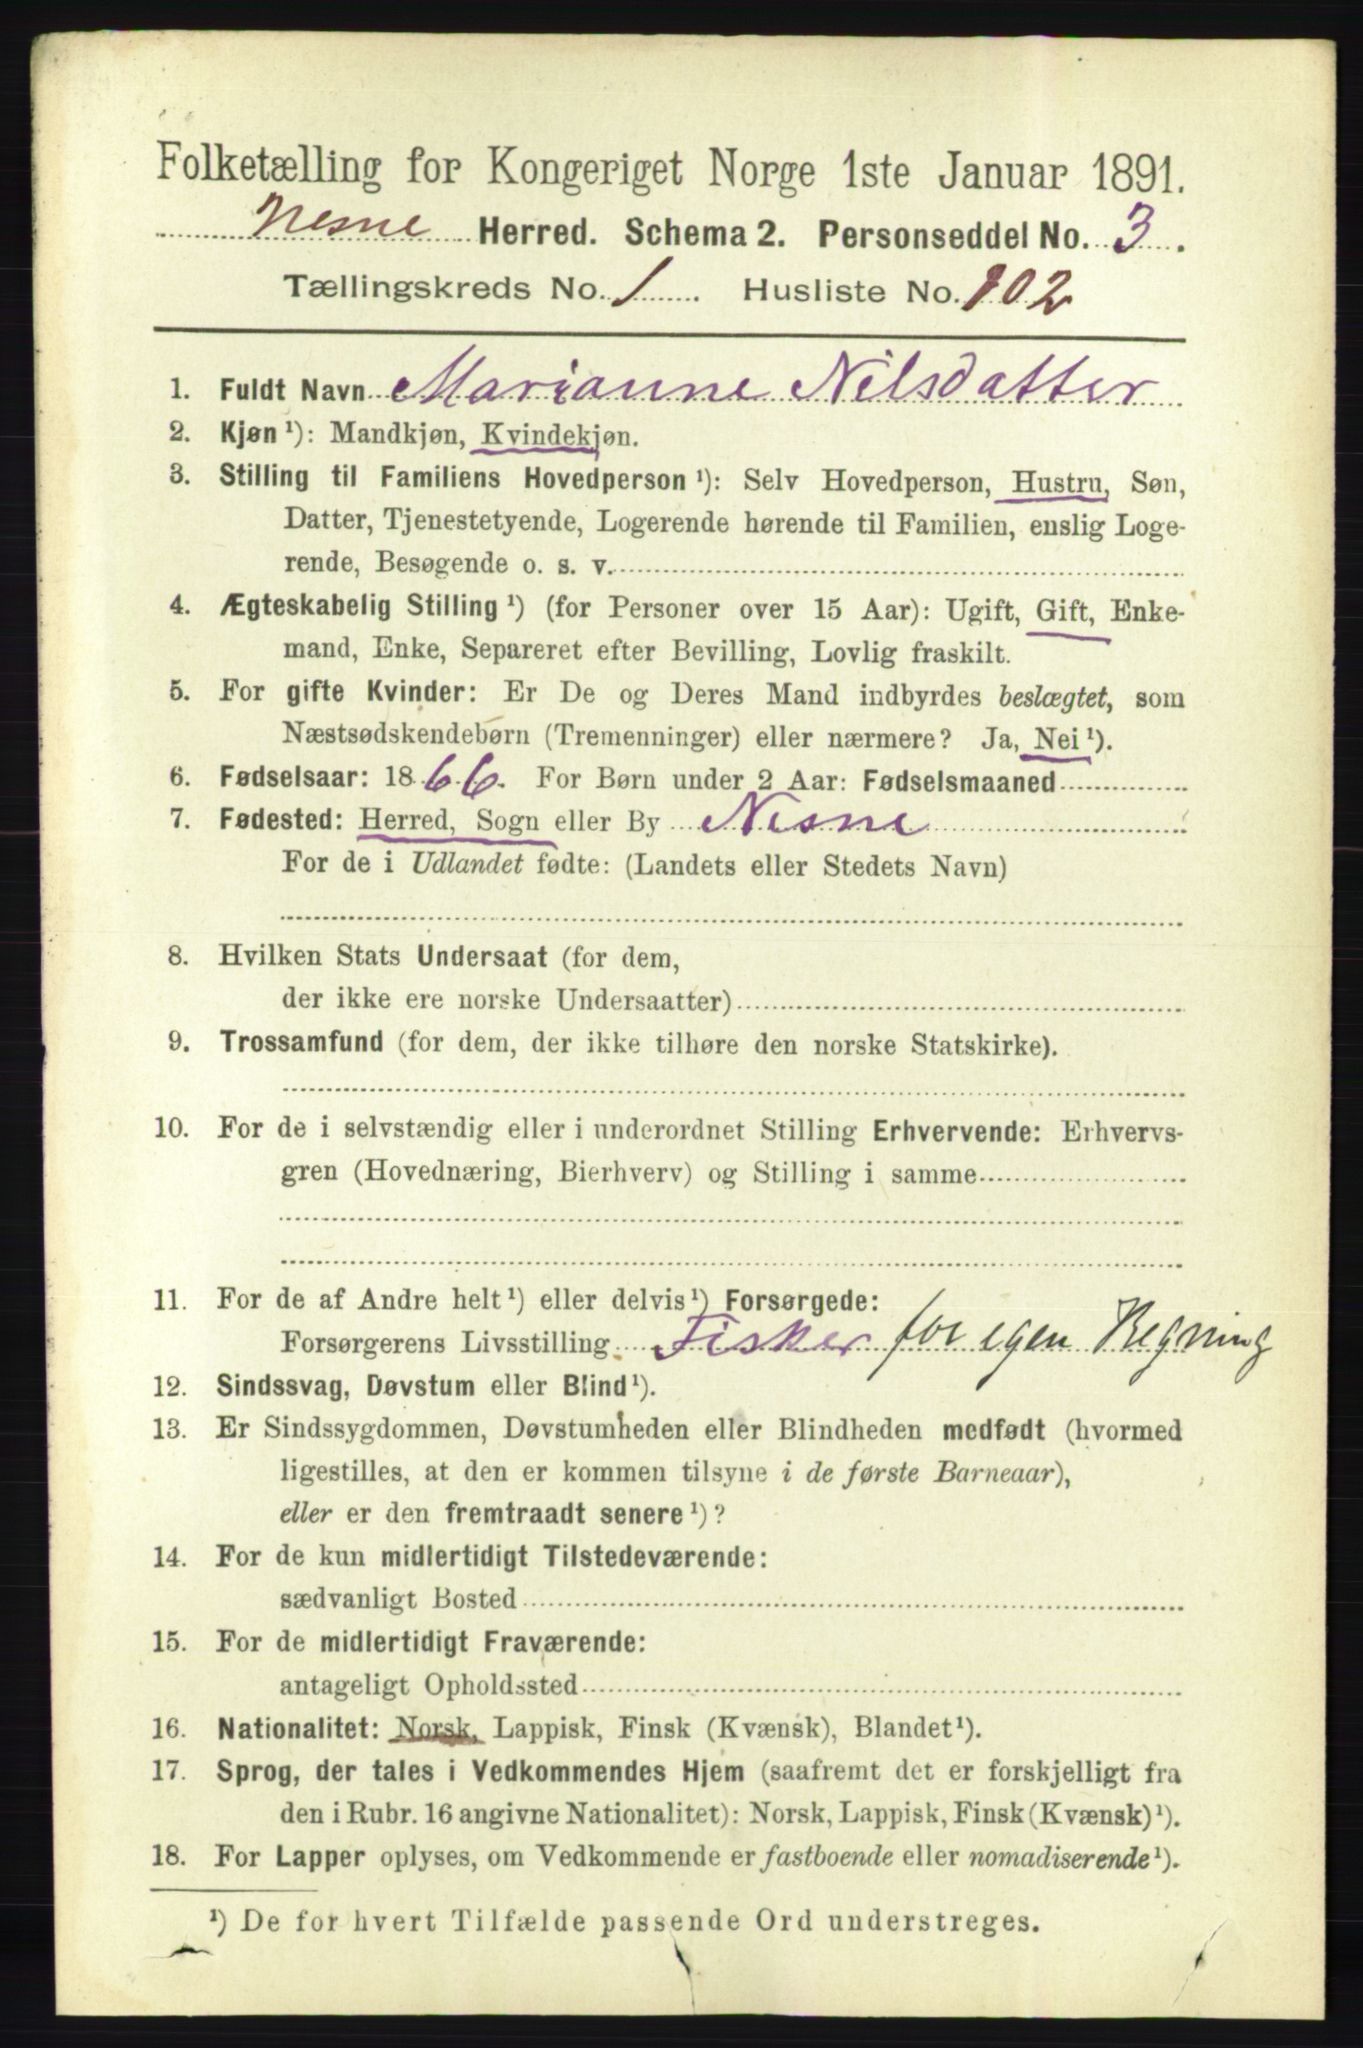 Folketælling for Kongeriget Norge 1ste Januar 1891.
Nesne Herred. Schema 2. Personseddel No. 3.
Tællingskreds No. 1. Husliste No. 102
1. Fuldt Navn Marianne Nilsdatter
2. Kjøn ¹): Mandkjøn, Kvindekjøn.
3. Stilling til Familiens Hovedperson ¹): Selv Hovedperson, Hustru, Søn,
Datter, Tjenestetyende, Logerende hørende til Familien, enslig Loge-
rende, Besøgende o. s. v.
4. Ægteskabelig Stilling ¹) (for Personer over 15 Aar): Ugift, Gift, Enke-
mand, Enke, Separeret efter Bevilling, Lovlig fraskilt.
5. For gifte Kvinder: Er De og Deres Mand indbyrdes beslægtet, som
Næstsødskendebørn (Tremenninger) eller nærmere? Ja, Nei ¹).
6. Fødselsaar: 1866. For Børn under 2 Aar: Fødselsmaaned
7. Fødested: Herred, Sogn eller By Nesne
For de i Udlandet fødte: (Landets eller Stedets Navn)
8. Hvilken Stats Undersaat (for dem,
der ikke ere norske Undersaatter)
9. Trossamfund (for dem, der ikke tilhøre den norske Statskirke).
10. For de i selvstændig eller i underordnet Stilling Erhvervende: Erhvervs-
gren (Hovednæring, Bierhverv) og Stilling i samme
11. For de af Andre helt ¹) eller delvis ¹) Forsørgede:
Forsørgerens Livsstilling Fisker for egen Regning
12. Sindssvag, Døvstum eller Blind ¹).
13. Er Sindssygdommen, Døvstumheden eller Blindheden medfødt (hvormed
ligestilles, at den er kommen tilsyne i de første Barneaar),
eller er den fremtraadt senere ¹)?
14. For de kun midlertidigt Tilstedeværende:
sædvanligt Bosted
15. For de midlertidigt Fraværende:
antageligt Opholdssted
16. Nationalitet: Norsk, Lappisk, Finsk (Kvænsk), Blandet ¹).
17. Sprog, der tales i Vedkommendes Hjem (saafremt det er forskjelligt fra
den i Rubr. 16 angivne Nationalitet): Norsk, Lappisk, Finsk (Kvænsk) ¹).
18. For Lapper oplyses, om Vedkommende er fastboende eller nomadiserende ¹).
¹) De for hvert Tilfælde passende Ord understreges.